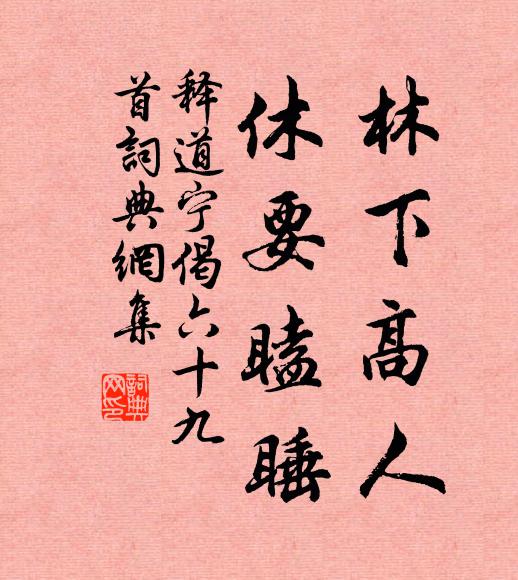 林下高人
休要瞌睡
释道宁偈六十九
首詞典網集
詞典
网印